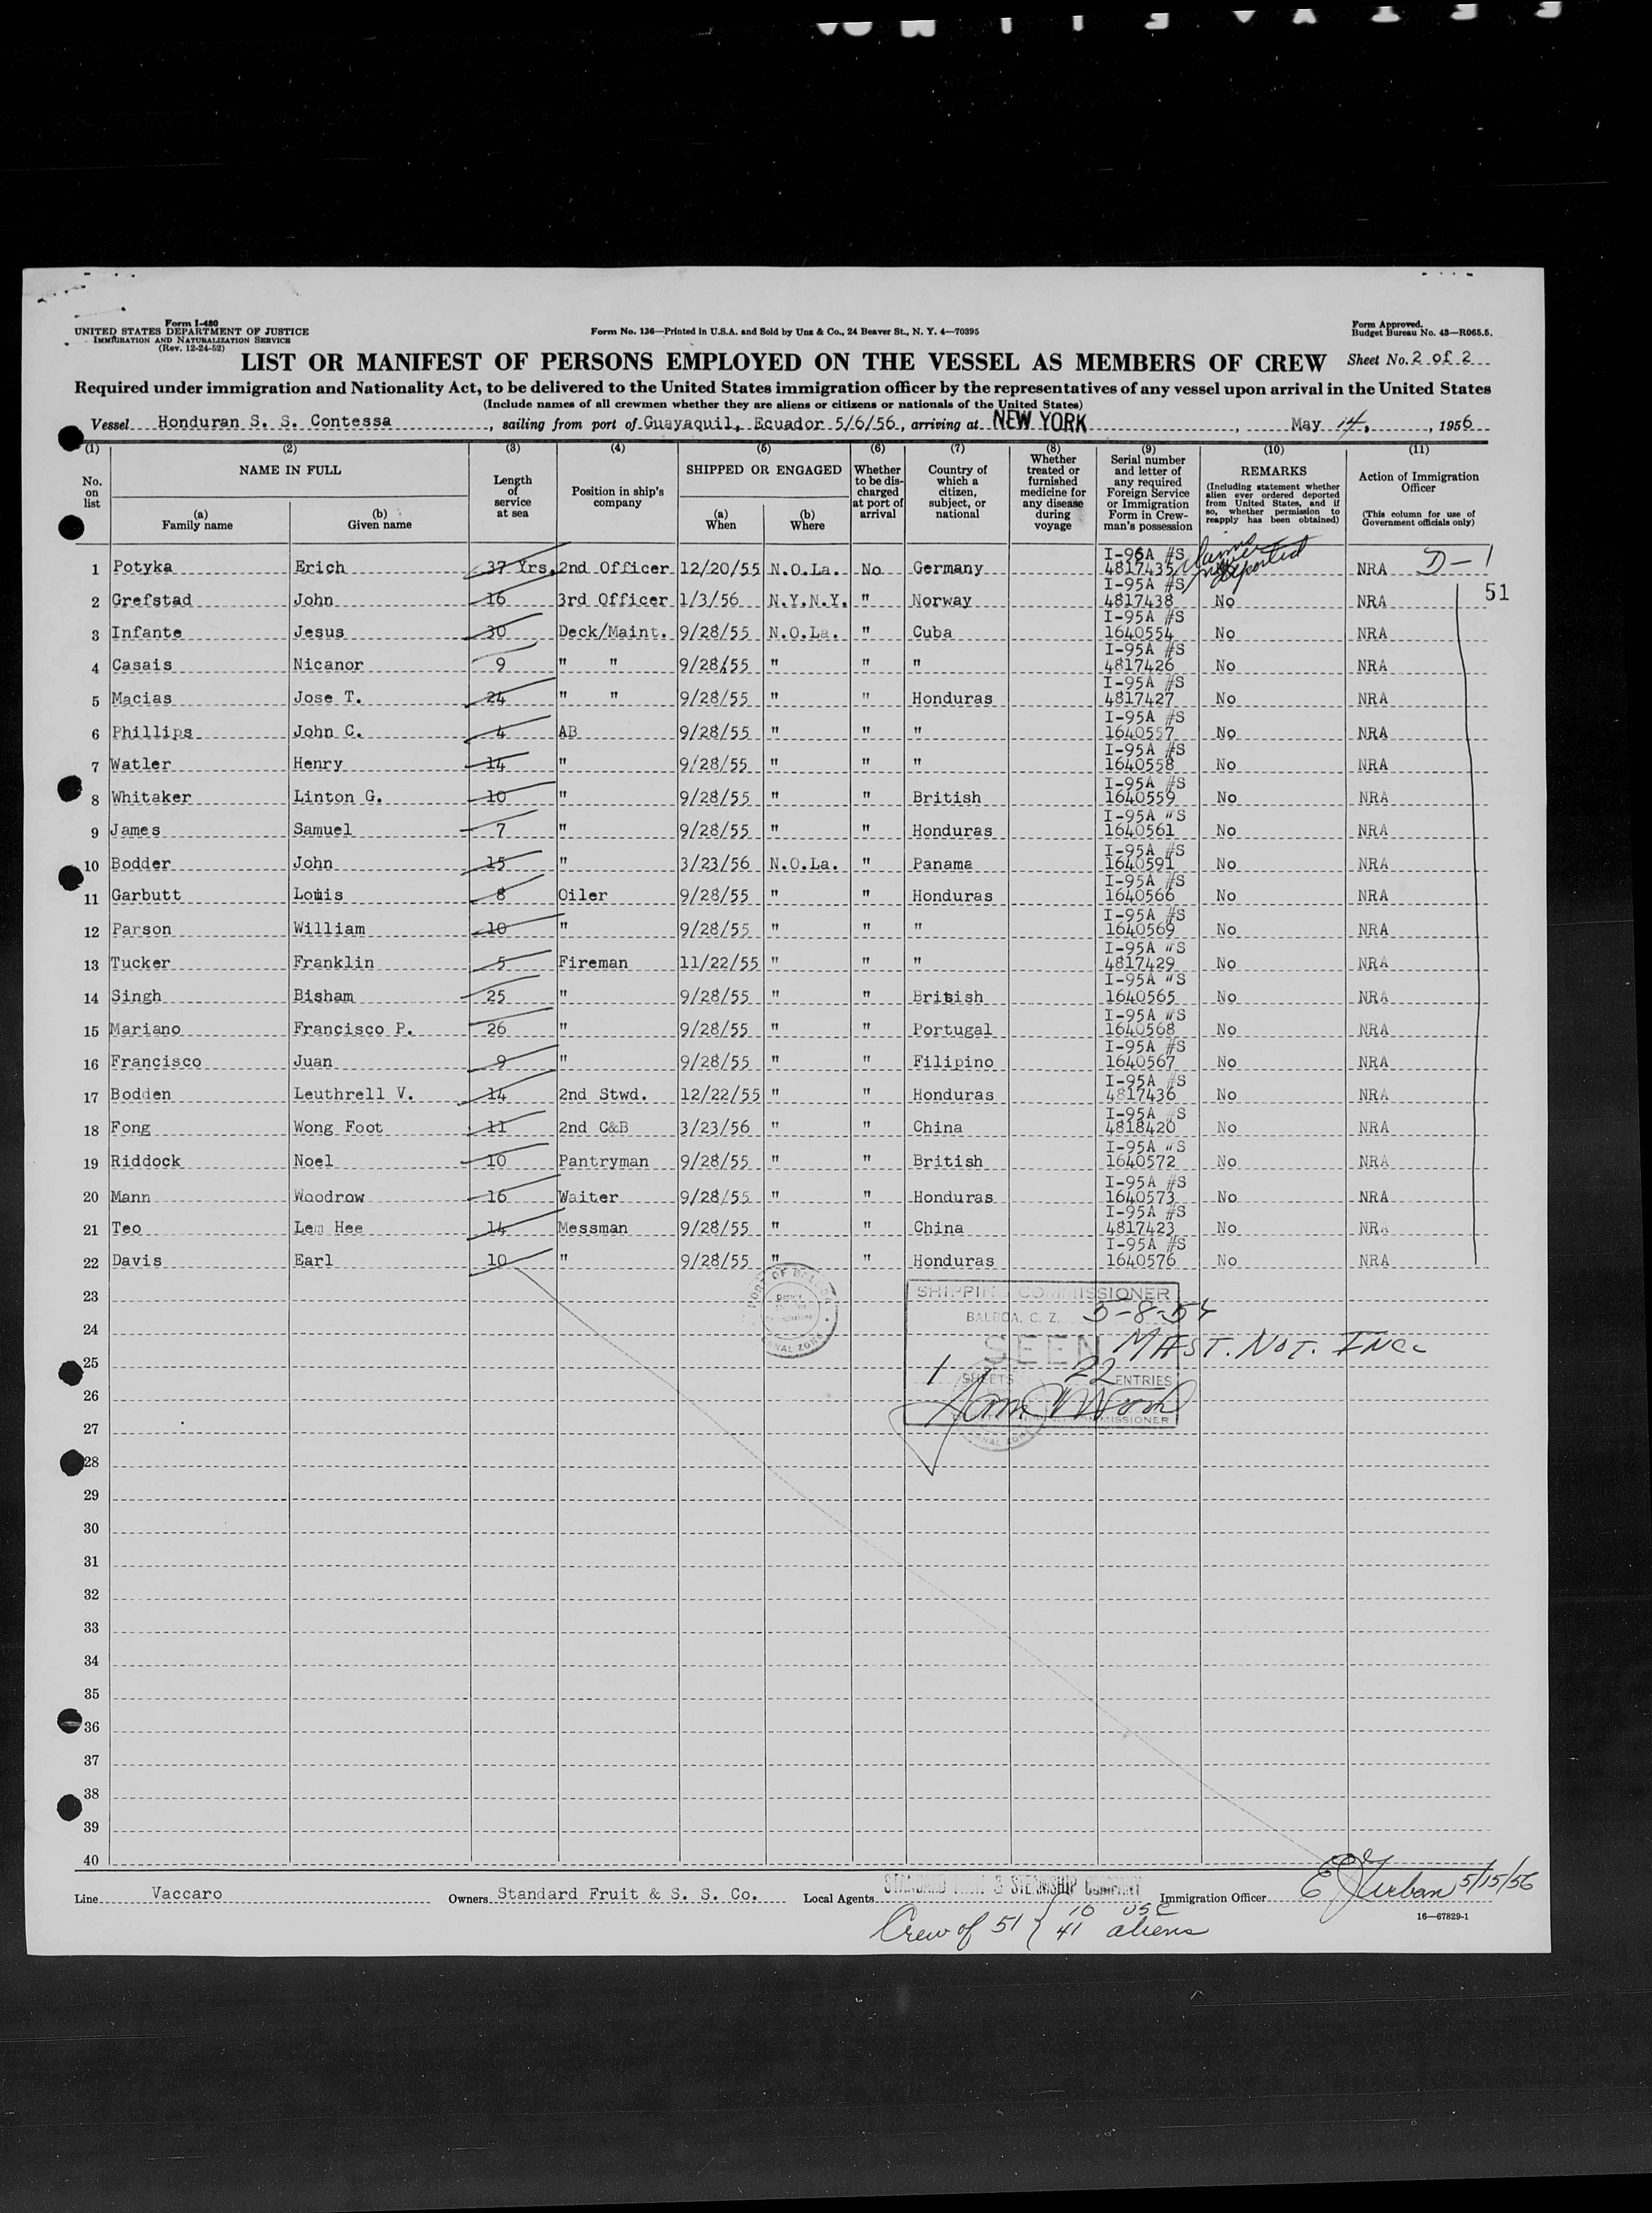 Form I-480
UNITED STATES DEPARTMENT OF JUSTICE
IMMIGRATION AND NATURALIZATION SERVICE
(Rev. 12-24-52)
Form No. 136—Printed in U.S.A. and Sold by Unz & Co., 24 Beaver St., N. Y. 4—70395
Form Approved.
Budget Bureau No. 43—R065.5.
LIST OR MANIFEST OF PERSONS EMPLOYED ON THE VESSEL AS MEMBERS OF CREW Sheet No. 2 of 2
Required under immigration and Nationality Act, to be delivered to the United States immigration officer by the representatives of any vessel upon arrival in the United States
(Include names of all crewmen whether they are aliens or citizens or nationals of the United States)
Vessel Honduran S. S. Contessa, sailing from port of Guayaquil, Ecuador 5/6/56, arriving at NEW YORK, May 14, 1956
(1) No. on list
(2) NAME IN FULL (a) Family name (b) Given name
(3) Length of service at sea
(4) Position in ship's company
(5) SHIPPED OR ENGAGED (a) When (b) Where
(6) Whether to be discharged at port of arrival
(7) Country of which a citizen, subject, or national
(8) Whether treated or furnished medicine for any disease during voyage
(9) Serial number and letter of any required Foreign Service or Immigration Form in Crewman's possession
(10) REMARKS (Including statement whether alien ever ordered deported from United States, and if so, whether permission to reapply has been obtained)
(11) Action of Immigration Officer (This column for use of Government officials only)
1 Potyka Erich 37 Yrs. 2nd Officer 12/20/55 N.O.La. No Germany I-95A #S 4817435 never deported NRA D-1
51
2 Grefstad John 16 3rd Officer 1/3/56 N.Y.N.Y. " Norway I-95A #S 4817438 No NRA
3 Infante Jesus 30 Deck/Maint. 9/28/55 N.O.La. " Cuba I-95A #S 1640554 No NRA
4 Casais Nicanor 9 " " 9/28/55 " " " I-95A #S 4817426 No NRA
5 Macias Jose T. 24 " " 9/28/55 " " Honduras I-95A #S 4817427 No NRA
6 Phillips John C. 4 AB 9/28/55 " " " I-95A #S 1640557 No NRA
7 Watler Henry 14 " 9/28/55 " " " I-95A #S 1640558 No NRA
8 Whitaker Linton G. 10 " 9/28/55 " " British I-95A #S 1640559 No NRA
9 James Samuel 7 " 9/28/55 " " Honduras I-95A "S 1640561 No NRA
10 Bodder John 15 " 3/23/56 N.O.La. " Panama I-95A #S 1640591 No NRA
11 Garbutt Louis 8 Oiler 9/28/55 " " Honduras I-95A #S 1640566 No NRA
12 Parson William 10 " 9/28/55 " " " I-95A #S 1640569 No NRA
13 Tucker Franklin 5 Fireman 11/22/55 " " " I-95A "S 4817429 No NRA
14 Singh Bisham 25 " 9/28/55 " " British I-95A "S 1640565 No NRA
15 Mariano Francisco P. 26 " 9/28/55 " " Portugal I-95A #S 1640568 No NRA
16 Francisco Juan 9 " 9/28/55 " " Filipino I-95A #S 1640567 No NRA
17 Bodden Leuthrell V. 14 2nd Stwd. 12/22/55 " " Honduras I-95A #S 4817436 No NRA
18 Fong Wong Foot 11 2nd C&B 3/23/56 " " China I-95A S 4818420 No NRA
19 Riddock Noel 10 Pantryman 9/28/55 " " British I-95A "S 1640572 No NRA
20 Mann Woodrow 16 Waiter 9/28/55 " " Honduras I-95A #S 1640573 No NRA
21 Teo Lem Hee 14 Messman 9/28/55 " " China I-95A #S 4817423 No NRA
22 Davis Earl 10 " 9/28/55 " " Honduras I-95A #S 1640576 No NRA
23
PORT OF BALBOA CANAL ZONE
SHIPPING COMMISSIONER
BALBOA, C. Z. 5-8-54
24
SEEN MAST. NOT. INCL
25
1 SHEETS 22 ENTRIES
26
COMMISSIONER
CANAL ZONE
27
28
29
30
31
32
33
34
35
36
37
38
39
40
Line Vaccaro Owners Standard Fruit & S. S. Co. Local Agents STANDARD FRUIT & STEAMSHIP COMPANY Immigration Officer E J Urban 5/15/56
16—67829-1
Crew of 51 { 10 USC
41 aliens